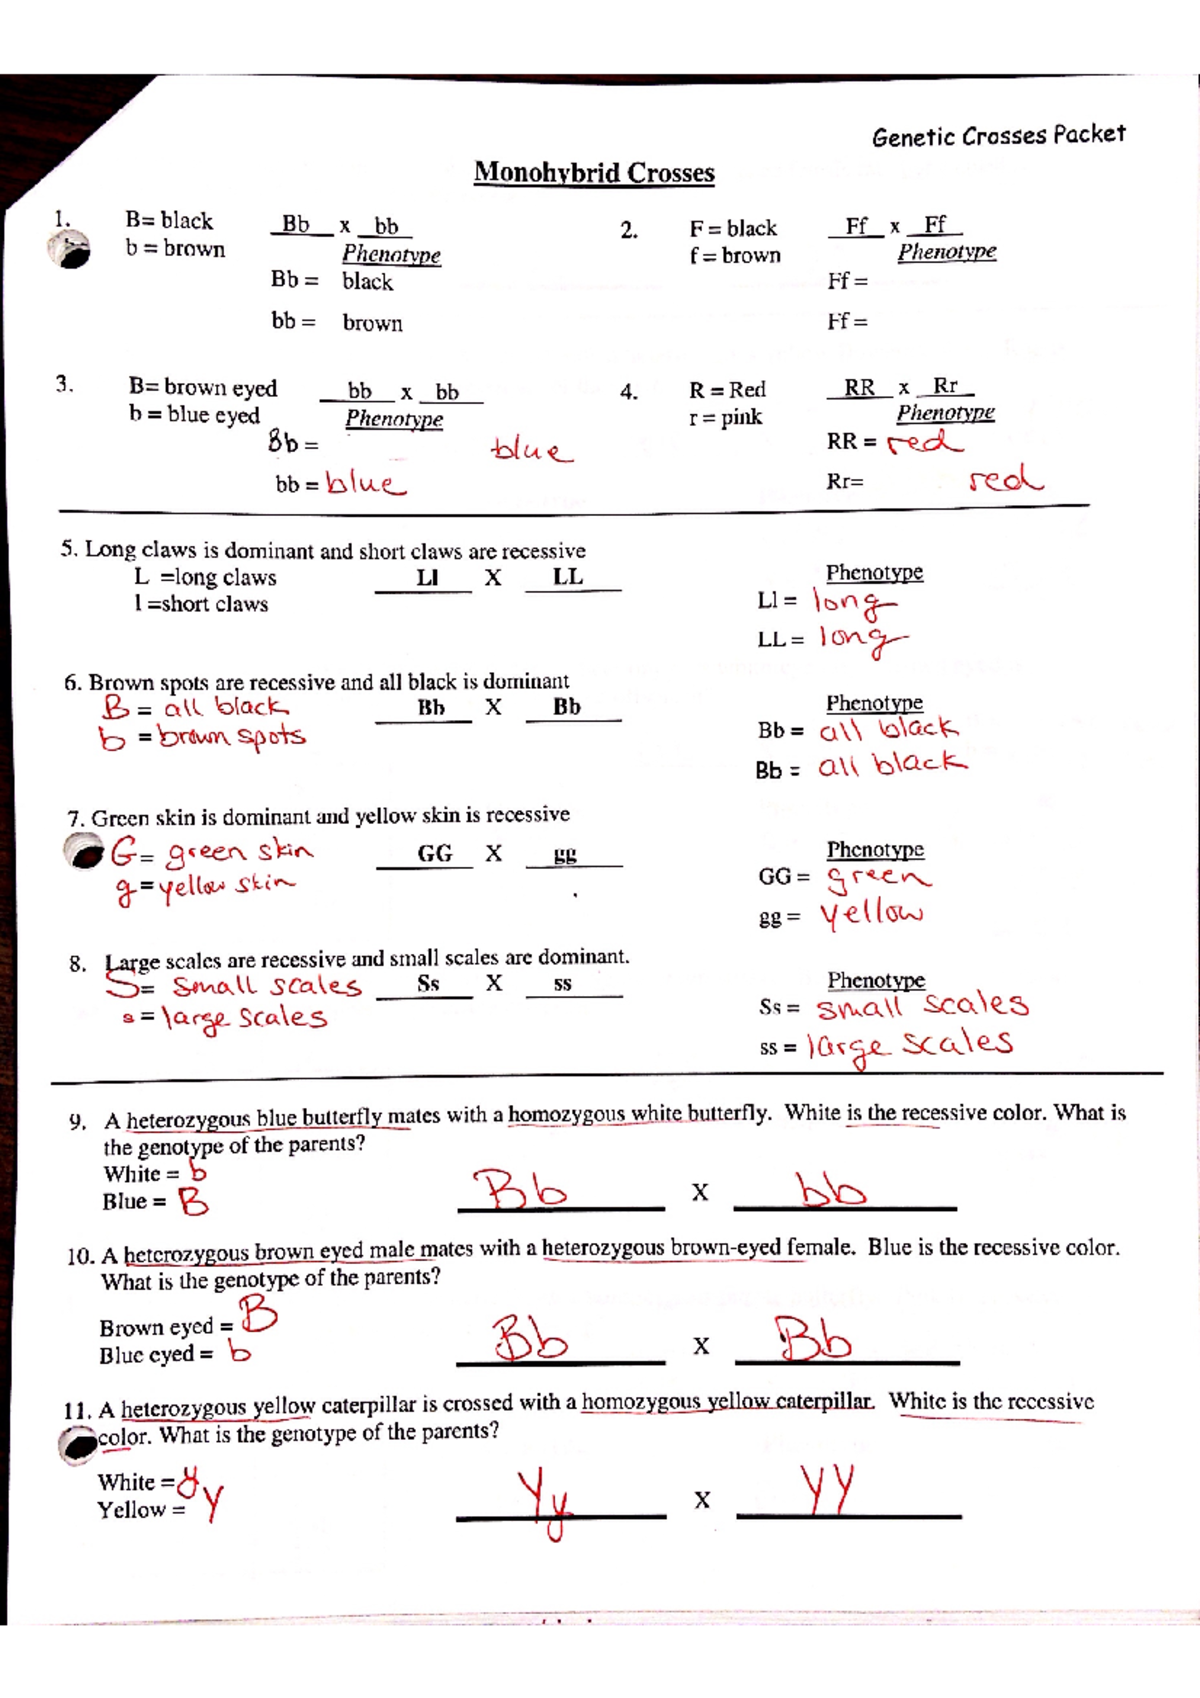 Genetic Crosses Packet
Monohybrid Crosses
1. B= black Bb x bb
b = brown Phenotype
Bb = black
bb = brown
2. F = black Ff x Ff
f = brown Phenotype
Ff =
Ff =
3. B= brown eyed bb x bb
b = blue eyed Phenotype
Bb = blue
bb = blue
4. R = Red RR x Rr
r = pink Phenotype
RR = red
Rr= red
5. Long claws is dominant and short claws are recessive
L =long claws Ll X LL Phenotype
l =short claws Ll = long
LL = long
6. Brown spots are recessive and all black is dominant
B = all black Bb X Bb Phenotype
b = brown spots Bb = all black
Bb = all black
7. Green skin is dominant and yellow skin is recessive
G = green skin GG X gg Phenotype
g = yellow skin GG = green
gg = yellow
8. Large scales are recessive and small scales are dominant.
S= small scales Ss X ss Phenotype
s = large scales Ss = small scales
ss = large scales
9. A heterozygous blue butterfly mates with a homozygous white butterfly. White is the recessive color. What is
the genotype of the parents?
White = b
Blue = B Bb X bb
10. A heterozygous brown eyed male mates with a heterozygous brown-eyed female. Blue is the recessive color.
What is the genotype of the parents?
Brown eyed = B
Blue eyed = b Bb X Bb
11. A heterozygous yellow caterpillar is crossed with a homozygous yellow caterpillar. White is the recessive
color. What is the genotype of the parents?
White = y
Yellow = Y Yy X YY